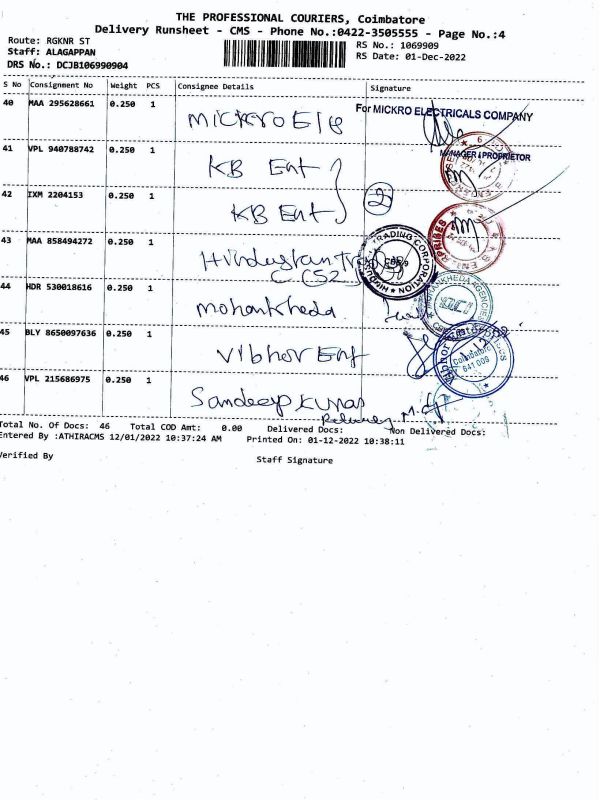 THE PROFESSIONAL COURIERS, Coimbatore
Delivery Runsheet - CMS - Phone No.:0422-3505555 - Page No.:4
Route: RGKNR ST
RS No.: 1069909
Staff: ALAGAPPAN
RS Date: 01-Dec-2022
DRS No.: DCJB106990904
S No Consignment No Weight PCS Consignee Details Signature
40 MAA 295628661 0.250 1 MICKRO Ele For MICKRO ELECTRICALS COMPANY
MANAGER / PROPRIETOR
41 VPL 940788742 0.250 1 KB Ent
42 IXM 2204153 0.250 1 KB Ent 2
43 MAA 858494272 0.250 1 Hindustan Tra
C (52) HINDUSTAN TRADING CORPORATION
44 HDR 530018616 0.250 1 Mohankheda MOHANKHEDA AGENCIES
45 BLY 8650097636 0.250 1 Vibhor Ent Vibhor Coimbatore 641 009
46 VPL 215686975 0.250 1 Sandeep Kumar
Total No. Of Docs: 46 Total COD Amt: 0.00 Delivered Docs: Non Delivered Docs:
Entered By :ATHIRACMS 12/01/2022 10:37:24 AM Printed On: 01-12-2022 10:38:11
Verified By Staff Signature